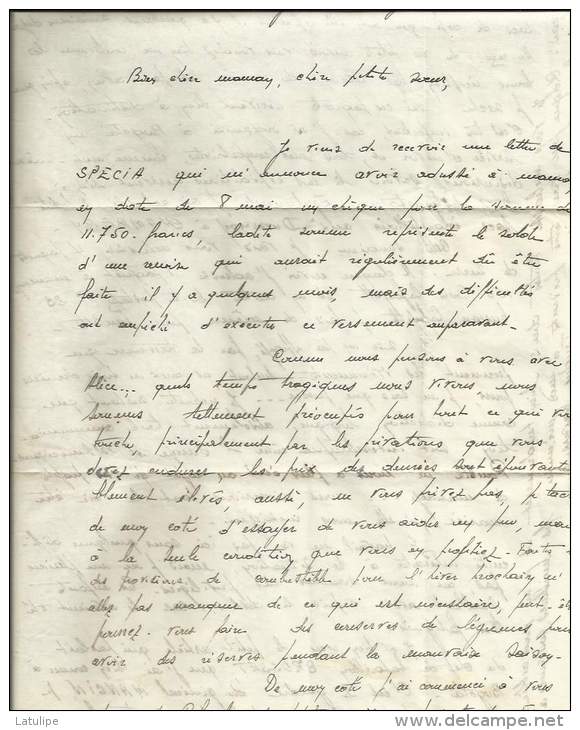 Bien chère maman, chère petite sœur,
Je viens de recevoir une lettre de
SPÈCIA qui m'annonce avoir adressé à maman,
en date du 8 mai un chèque pour la somme de
11.750. francs, ladite somme représente le solde
d'une remise qui aurait régulièrement dû être
faite il y a quelques mois, mais des difficultés
ont empêché d'exécuter ce versement auparavant-
Comme nous pensons à vous avec
Alice... quels temps tragiques nous vivons, nous
sommes tellement préoccupés pour tout ce qui vous
touche, principalement par les privations que vous
devez endurer, les prix des denrées sont épouvanta-
blement élevés, aussi, ne vous privez pas, je tache
de mon coté d'essayer de vous aider un peu, mais
à la seule condition que vous en profitiez- Faites
des provisions de combustible pour l'hiver prochain, n'
allez pas manquer de ce qui est nécessaire, peut-être
pourrez-vous faire des conserves de légumes pour
avoir des réserves pendant la mauvaise saison-
De mon coté j'ai commencé à vous
Latulipe
delcampe.net